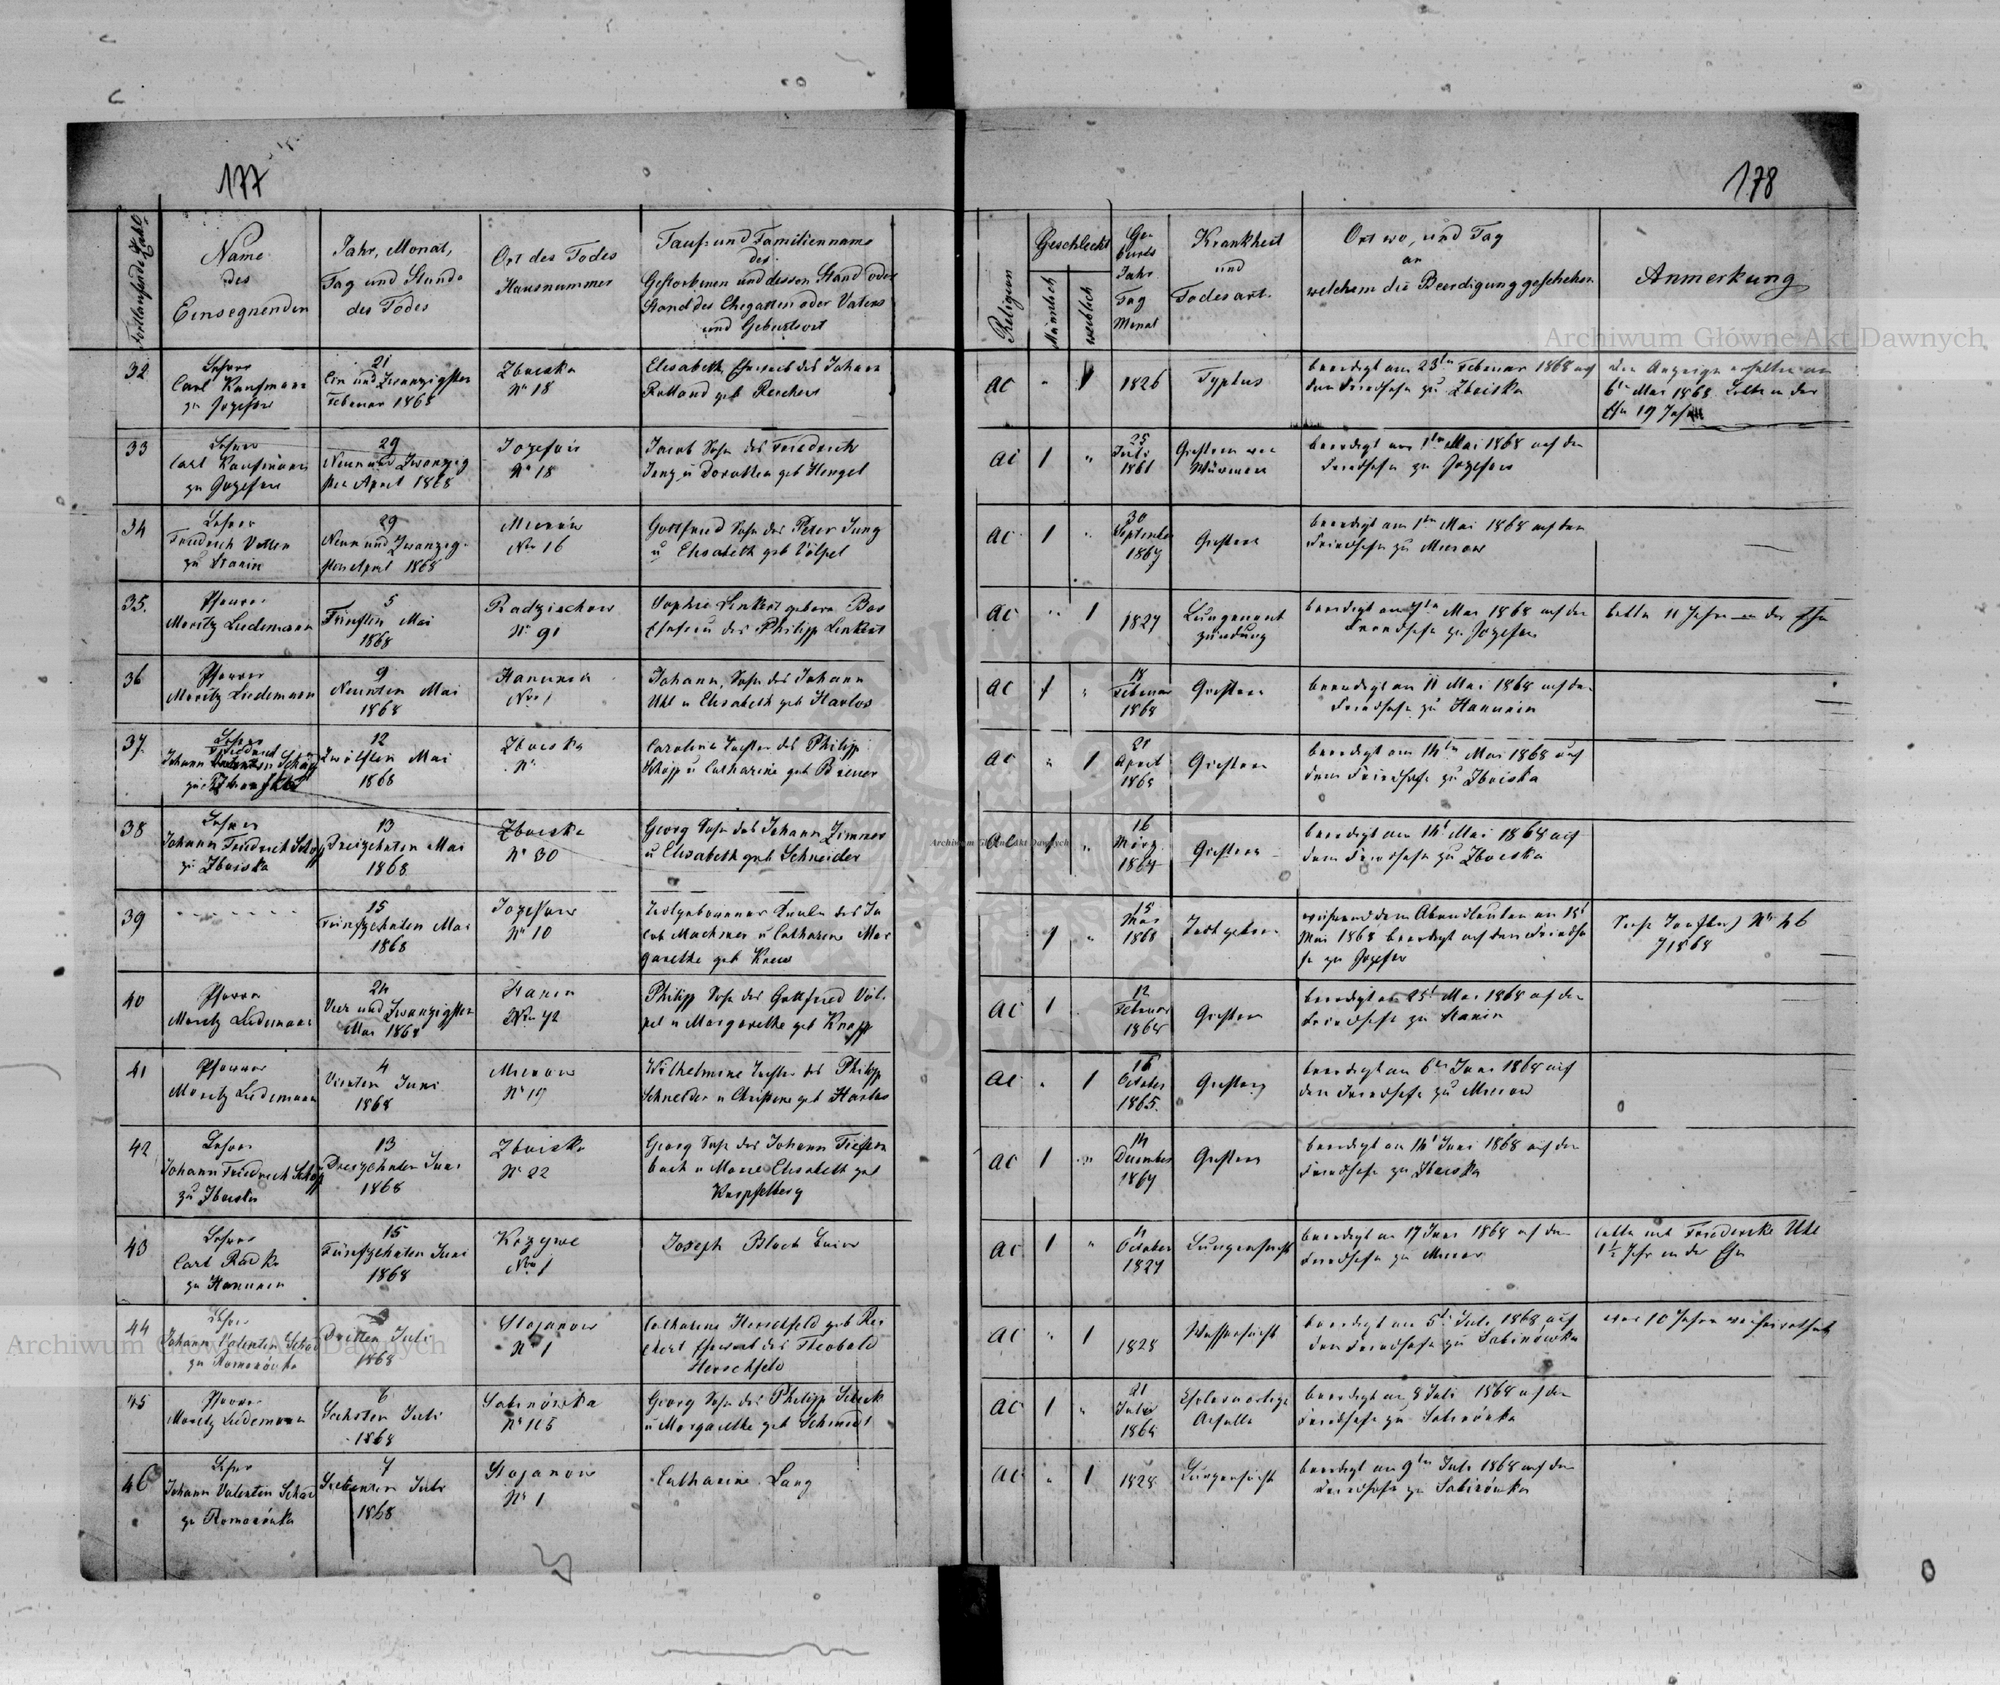 177
Fortlaufende Zahl
Name
des
Einsegnenden
Jahr, Monat,
Tag und Stunde
des Todes
Ort des Todes
Hausnummer
Tauf- und Familienname
des
Gestorbenen und dessen Stand oder
Stand des Ehegatten oder Vaters
und Geburtsort
32
Lehrer
Carl Kaufmann
zu Jozefow
21
Ein und Zwanzigsten
Februar 1868
Zboiska
Nr 18
Elisabeth, Eheweib des Johann
Rolland geb Reichert
33
Lehrer
Carl Kaufmann
zu Jozefow
29
Neun und Zwanzig
sten April 1868
Jozefow
Nr 18
Jacob Sohn des Friedrich
Jung u Dorothea geb Hengel
34
Lehrer
Friedrich Vetter
zu Stanin
29
Neun und Zwanzig-
sten April 1868
Mierów
Nro 16
Gottfried Sohn des Peter Jung
u Elisabeth geb Völpel
35.
Pfarrer
Moritz Ludemann
5
Fünften Mai
1868
Radziechow
Nr 91
Sophie Linkert geborn Bos
Ehefrau des Philipp Linkert
36
Pfarrer
Moritz Ludemann
9
Neunten Mai
1868
Hanunin
Nro 1
Johann, Sohn des Johann
Uhl u Elisabeth geb Harlos
37.
Lehrer
Friedrich
Johann Schöpp
zu
12
Zwölften Mai
1868
Zboiska
Nr
Caroline Tochter des Philipp
Schöpp u Catharine geb Brener
38
Lehrer
Johann Friedrich Schöpp
zu Zboiska
13
Dreizehnten Mai
1868
Zboiska
Nr 30
Georg Sohn des Johann Zimmer
u Elisabeth geb Schneider
39
- - - - - - -
15
Fünfzehnten Mai
1868
Jozefow
Nr 10
Todtgeborener Knabe des Ja
cob Machmer u Catharine Mar
garethe geb
40
Pfarrer
Moritz Ludemann
24
Vier und Zwanzigsten
Mai 1868
Stanin
Nro 42
Philipp Sohn des Gottfried Völ-
pel u Margarethe geb Knapp
41
Pfarrer
Moritz Ludemann
4
Vierten Juni
1868
Mierow
Nr 19
Wilhelmine Tochter des Philipp
Schneider u Christine geb Harlos
42
Lehrer
Johann Friedrich Schöpp
zu Zboiska
13
Dreizehnten Juni
1868
Zboiska
Nr 22
Georg Sohn des Johann Tiefen
bach u Marie Elisabeth geb
Knipfelberg
43
Lehrer
Carl Radke
zu Hanunin
15
Fünfzehnten Juni
1868
Krzywe
Nro 1
Joseph Bloch
44
Lehrer
Johann Valentin Schad
zu Romanówka
3
Dritten Juli
1868
Stojanow
Nr 1
Catharine Herschfeld geb Rei
chert Eheweib des Theobald
Herschfeld
45
Pfarrer
Moritz Ludemann
6
Sechsten Juli
1868
Sabinówka
Nr 115
Georg Sohn des Philipp Schick
u Margarethe geb Schmidt
46
Lehrer
Johann Valentin Schad
zu Romanówka
7
Siebenten Juli
1868
Stojanow
Nr 1
Catharine Lang
178
Religion
Geschlecht
Männlich
weiblich
Ge-
burts
Jahr
Tag
Monat
Krankheit
und
Todesart.
Ort wo, und Tag
an
welchem die Beerdigung geschehen
Anmerkung
ac " 1
1826
Typhus
beerdigt am 23ten Februar 1868 auf
dem Friedhofe zu Zboiska
die Anzeige erhalten am
6ten Mai 1868 Lebte in der
Ehe 19 Jahre
ac 1 "
25
Juli
1861
Gichtern von
Würmern
beerdigt am 1ten Mai 1868 auf dem
Friedhofe zu Jozefow
ac 1 "
30
September
1867
Gichtern
beerdigt am 1ten Mai 1868 auf dem
Friedhofe zu Mierow
ac " 1
1827
Lungenent
zündung
beerdigt am 7ten Mai 1868 auf dem
Friedhofe zu Jozefow
lebte 11 Jahre in der Ehe
ac 1 "
18
Februar
1868
Gichtern
beerdigt am 11 Mai 1868 auf dem
Friedhofe zu Hanunin
ac " 1
21
April
1868
Gichtern
beerdigt am 14ten Mai 1868 auf
dem Friedhofe zu Zboiska
ac 1 "
16
März
1867
Gichtern
beerdigt am 14t Mai 1868 auf
dem Friedhofe zu Zboiska
1 "
15
Mai
1868
Todtgeboren
während dem Abendläuten am 15t
Mai 1868 beerdigt auf dem Friedho
fe zu Jozefow
Siehe Taufbuch Nr 46
1868
ac 1
12
Februar
1868
Gichtern
beerdigt am 25t Mai 1868 auf dem
Friedhofe zu Stanin
ac " 1
16
October
1865.
Gichtern
beerdigt am 6ten Juni 1868 auf
dem Friedhofe zu Mierow
ac 1 "
14
December
1867
Gichtern
beerdigt am 14t Juni 1868 auf dem
Friedhofe zu Zboiska
ac 1 "
4
October
1827
Lungensucht
beerdigt am 17 Juni 1868 auf dem
Friedhofe zu Mierow
lebte mit Friedericke Uhl
1½ Jahr in der Ehe
ac " 1
1828
Wassersucht
beerdigt am 5t Juli 1868 auf
dem Friedhofe zu Sabinówka
war 10 Jahre verheirathet
ac 1 "
21
Juli
1868
Choleraartige
Anfälle
beerdigt am 8 Juli 1868 auf dem
Friedhofe zu Sabinówka
ac " 1
1828
Lungensucht
beerdigt am 9ten Juli 1868 auf dem
Friedhofe zu Sabinówka
Archiwum Główne Akt Dawnych
Archiwum Główne Akt Dawnych
Archiwum Główne Akt Dawnych